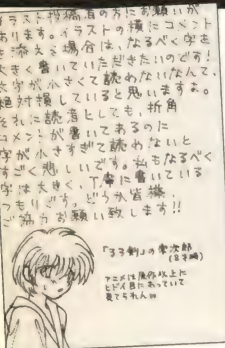 イラスト投稿者の方にお願いが
あります。イラストの横にコメント
を添える場合は、なるべく字を
大きく書いていただきたいのです!
文字が小さくて読めないなんて、
絶対損していると思いますよ。
それに読者としても、折角
コメントが書いてあるのに
字が小さすぎて読めないと
すごく悲しいです。私もなるべく
字は大きく、丁寧に書いている
つもりです。どうか皆様、
ご協力お願い致します!!
「るろ剣」の
アニメは原作以上に
ヒドイ目にあっていて
見てられん